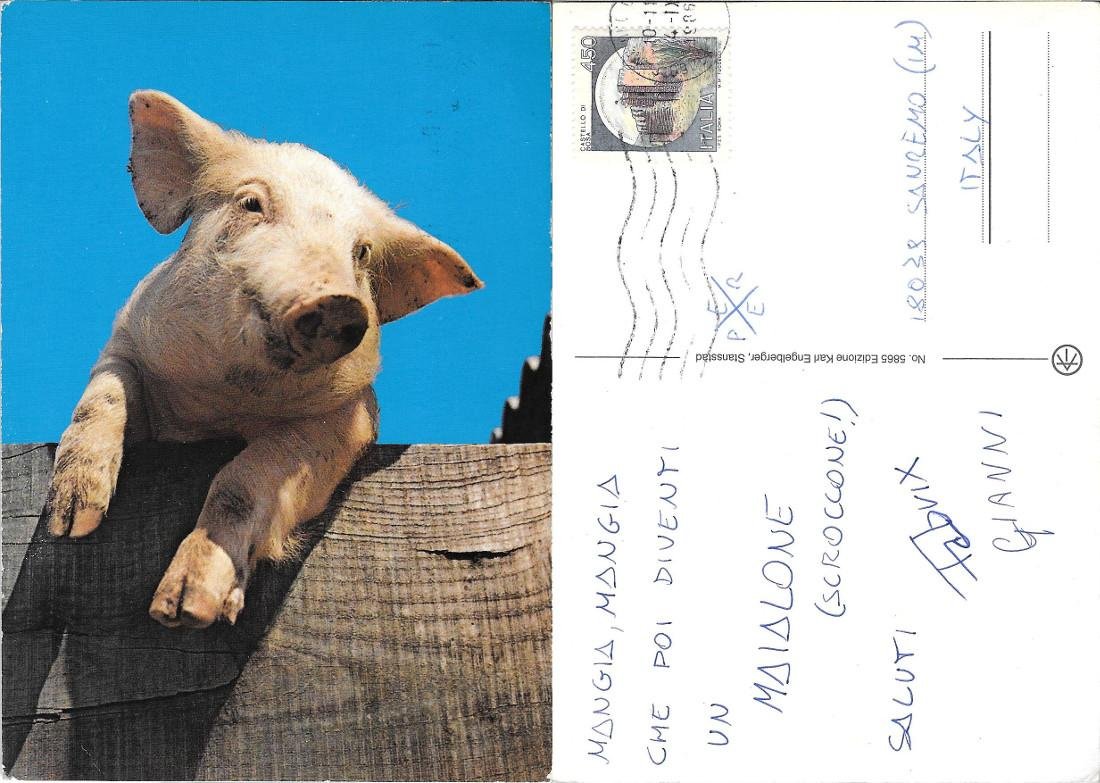 MANGIA, MANGIA
CHE POI DIVENTI
UN
MAIALONE
(SCROCCONE!)
SALUTI
GIANNI
PER
E
18038 SANREMO (IM)
ITALY
No. 5865 Edizione Karl Engelberger, Stansstad
450
CASTELLO DI
BOSA
ITALIA
10-11